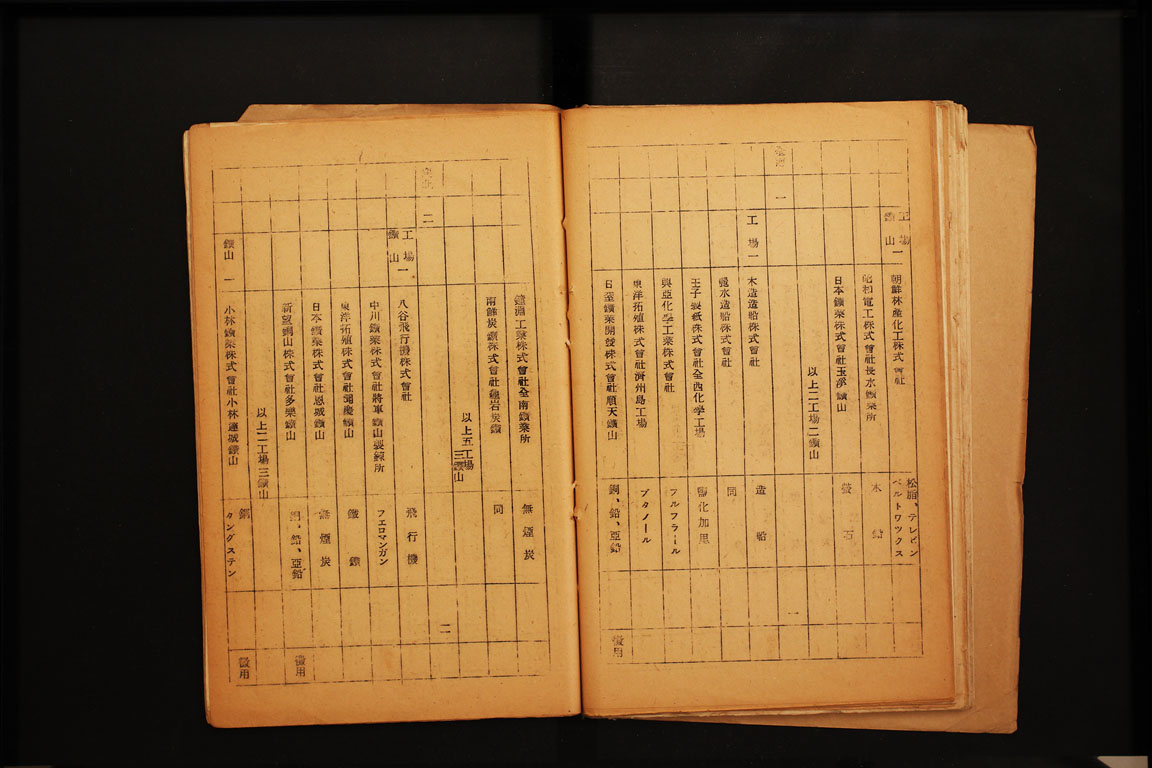 工場
鑛山 一
朝鮮林産化工株式會社
松脂、テレピン
ベルトワックス
昭和電工株式會社長水鑛業所
木鉛
日本鑛業株式會社玉溪鑛山
螢石
以上二工場二鑛山
一
一
工場一
木造造船株式會社
造船
水造船株式會社
同
王子製紙株式會社全西化學工場
鹽化加里
興亞化學工業株式會社
フルフラール
東洋拓殖株式會社濟州島工場
ブタノール
日室鑛業開發株式會社順天鑛山
銅、鉛、亞鉛
徴用
鐘淵工業株式會社全南鑛業所
無煙炭
南鮮炭鑛株式會社岩炭鑛
同
以上五工場
三鑛山
二
二
工場
鑛山 一
八谷飛行機株式會社
飛行機
中川鑛業株式會社將軍鑛山製鍊所
フエロマンガン
東洋拓殖株式會社聞慶鑛山
鐵鑛
日本鑛業株式會社恩城鑛山
無煙炭
新鑛山株式會社多樂鑛山
銅、鉛、亞鉛
徴用
以上二工場三鑛山
鑛山 一
小林鑛業株式會社小林蓮城鑛山
銅
タングステン
徴用